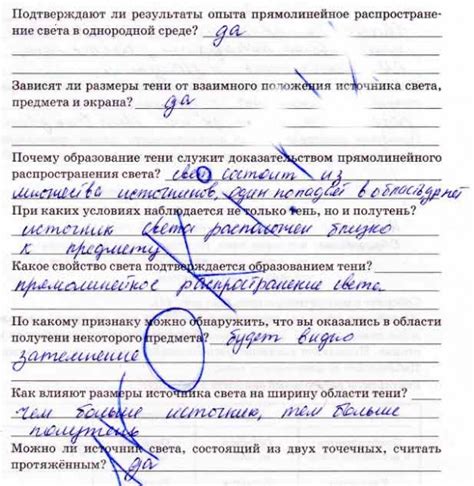 Подтверждают ли результаты опыта прямолинейное распростране-
ние света в однородной среде? да
Зависят ли размеры тени от взаимного положения источника света,
предмета и экрана? да
Почему образование тени служит доказательством прямолинейного
распространения света? свет состоит из
множества источников, один попадает в область
При каких условиях наблюдается не только тень, но и полутень?
источник света расположен близко
к предмету
Какое свойство света подтверждается образованием тени?
прямолинейное распространение света
По какому признаку можно обнаружить, что вы оказались в области
полутени некоторого предмета? будет видно
затемнение
Как влияют размеры источника света на ширину области тени?
Чем больше источник, тем больше
полутень
Можно ли источник света, состоящий из двух точечных, считать
протяжённым? да